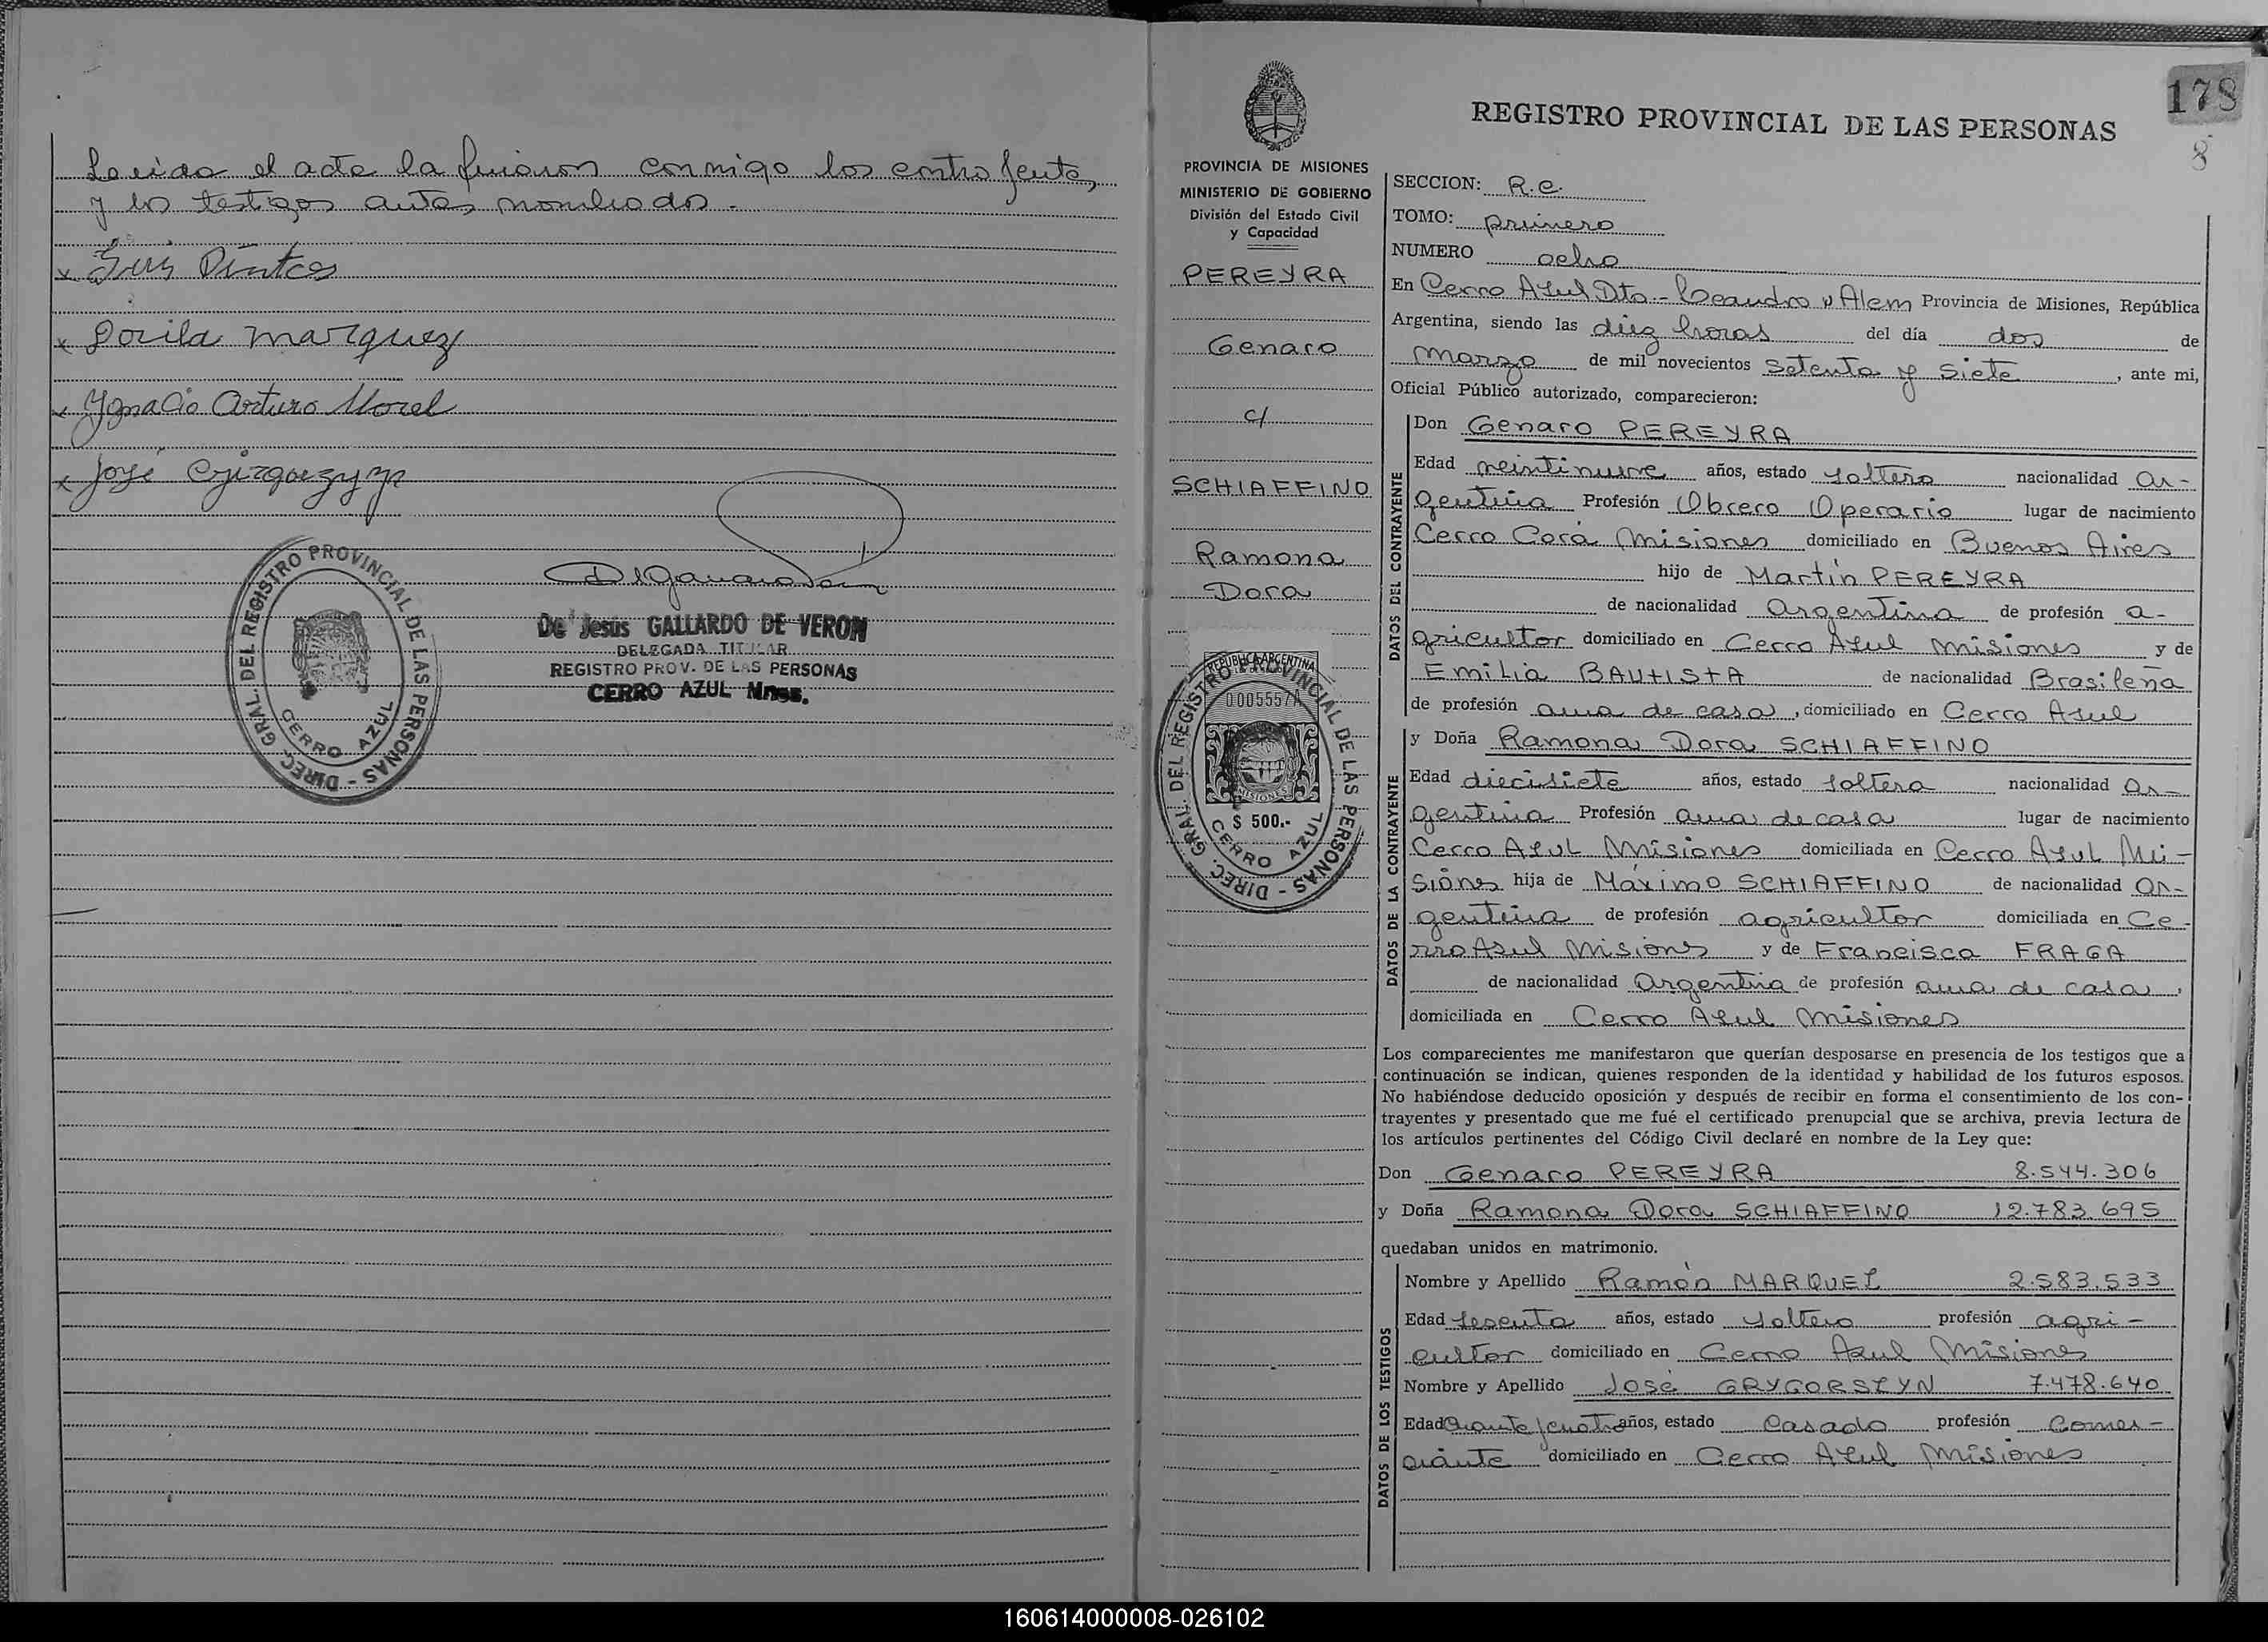 Leída el acta la firmaron conmigo los contrayentes,
y los testigos antes nombrados.
x Luis Pintos
x Dorila Marquez
x Ygnacio Arturo Morel
x José
DIREC. GRAL. DEL REGISTRO PROVINCIAL DE LAS PERSONAS -
CERRO AZUL
De Jesus GALLARDO DE VERON
DELEGADA TITULAR
REGISTRO PROV. DE LAS PERSONAS
CERRO AZUL Mnes.
178
8
REGISTRO PROVINCIAL DE LAS PERSONAS
PROVINCIA DE MISIONES
MINISTERIO DE GOBIERNO
División del Estado Civil
y Capacidad
PEREYRA
Genaro
c/
SCHIAFFINO
Ramona
Dora
REPUBLICA ARGENTINA
0005557A
MISIONES
$ 500.-
DIREC. GRAL. DEL REGISTRO PROVINCIAL DE LAS PERSONAS -
CERRO AZUL
SECCION: R.C.
TOMO: primero
NUMERO ocho
En Cerro Azul Dto. Leandro N Alem Provincia de Misiones, República
Argentina, siendo las diez horas del día dos de
marzo de mil novecientos setenta y siete, ante mi,
Oficial Público autorizado, comparecieron:
DATOS DEL CONTRAYENTE
Don Genaro PEREYRA
Edad veintinueve años, estado soltero nacionalidad Ar-
gentina Profesión Obrero Operario lugar de nacimiento
Cerro Corá Misiones domiciliado en Buenos Aires
hijo de Martín PEREYRA
de nacionalidad Argentina de profesión a-
gricultor domiciliado en Cerro Azul Misiones y de
Emilia BAUTISTA de nacionalidad Brasileña
de profesión ama de casa, domiciliado en Cerro Azul
DATOS DE LA CONTRAYENTE
y Doña Ramona Dora SCHIAFFINO
Edad diecisiete años, estado soltera nacionalidad Ar-
gentina Profesión ama de casa lugar de nacimiento
Cerro Azul Misiones domiciliada en Cerro Azul Mi-
siones hija de Máximo SCHIAFFINO de nacionalidad Ar-
gentina de profesión agricultor domiciliada en Ce-
rro Azul Misiones y de Francisca FRAGA
de nacionalidad Argentina de profesión ama de casa,
domiciliada en Cerro Azul Misiones
Los comparecientes me manifestaron que querían desposarse en presencia de los testigos que a
continuación se indican, quienes responden de la identidad y habilidad de los futuros esposos.
No habiéndose deducido oposición y después de recibir en forma el consentimiento de los con-
trayentes y presentado que me fué el certificado prenupcial que se archiva, previa lectura de
los artículos pertinentes del Código Civil declaré en nombre de la Ley que:
Don Genaro PEREYRA 8.544.306
y Doña Ramona Dora SCHIAFFINO 12.783.695
quedaban unidos en matrimonio.
DATOS DE LOS TESTIGOS
Nombre y Apellido Ramón MARQUEZ 2.583.533
Edad sesenta años, estado soltero profesión agri-
cultor domiciliado en Cerro Azul Misiones
Nombre y Apellido José GRYGORSZYN 7.478.640
Edad años, estado casado profesión Comer-
ciante domiciliado en Cerro Azul Misiones
160614000008-026102